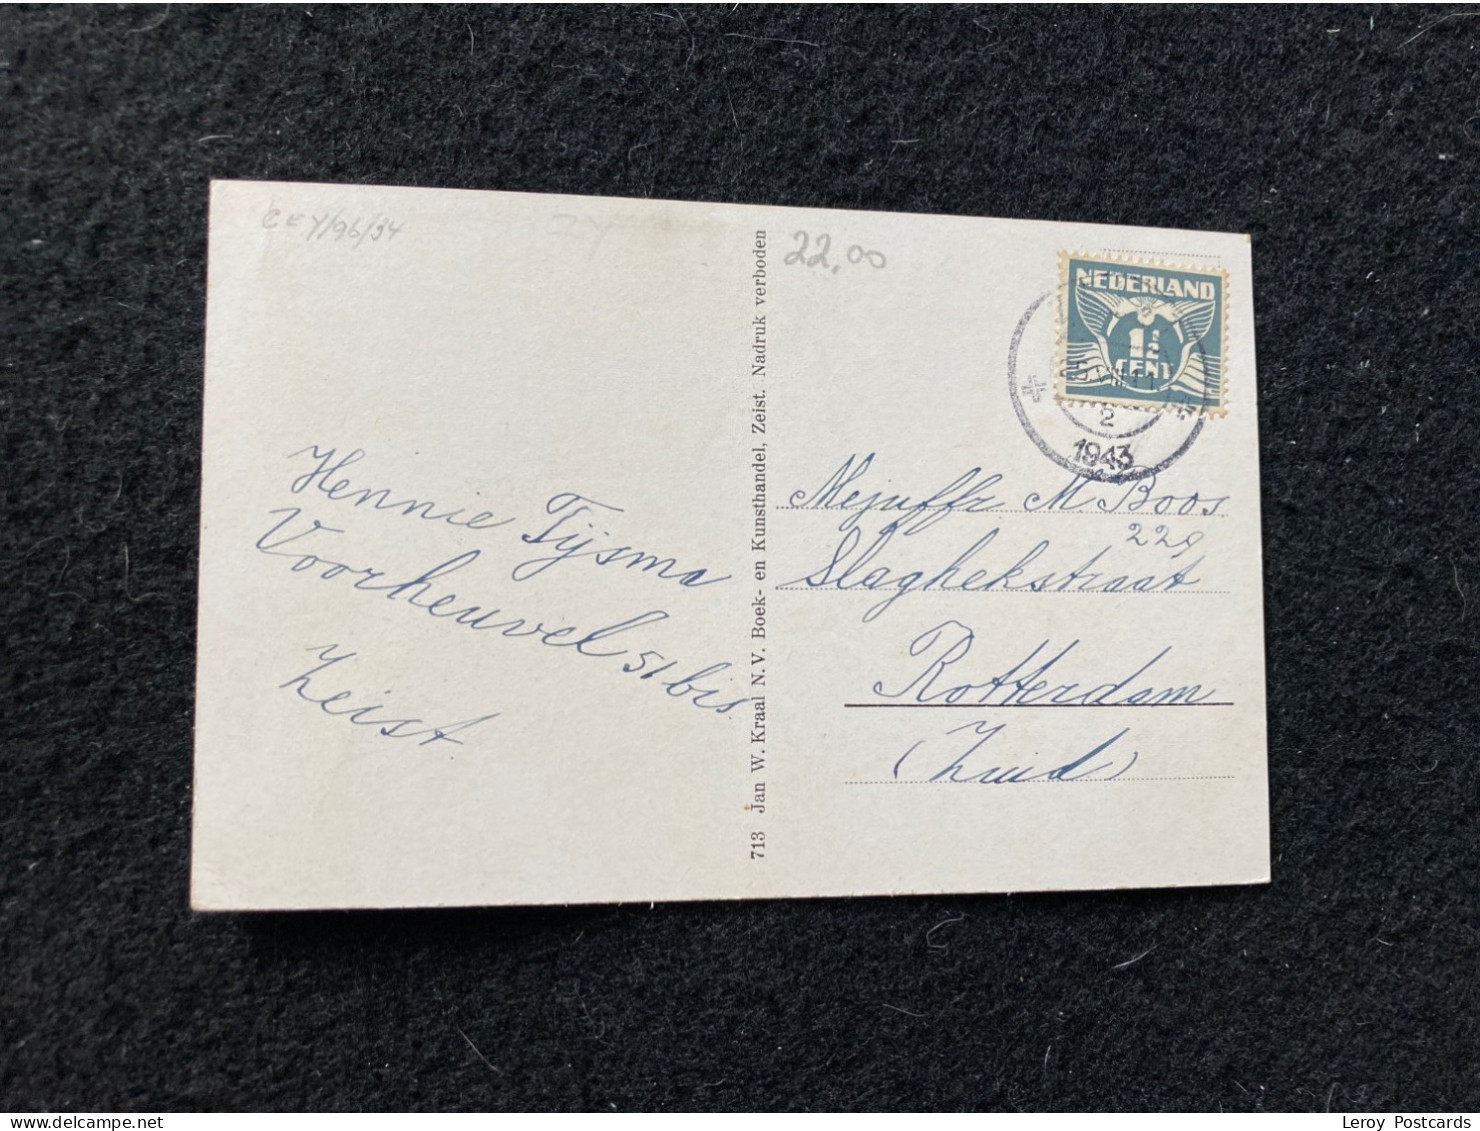 CEY/96/34
22.00
NEDERLAND
1½
CENT
2
1943
Hennie Tijsma
Voorheuvel 51 bis
Zeist
713 Jan W. Kraal N.V. Boek- en Kunsthandel, Zeist. Nadruk verboden
Mejuffr M. Boos
229
Slaghekstraat
Rotterdam
(Zuid)
Leroy Postcards